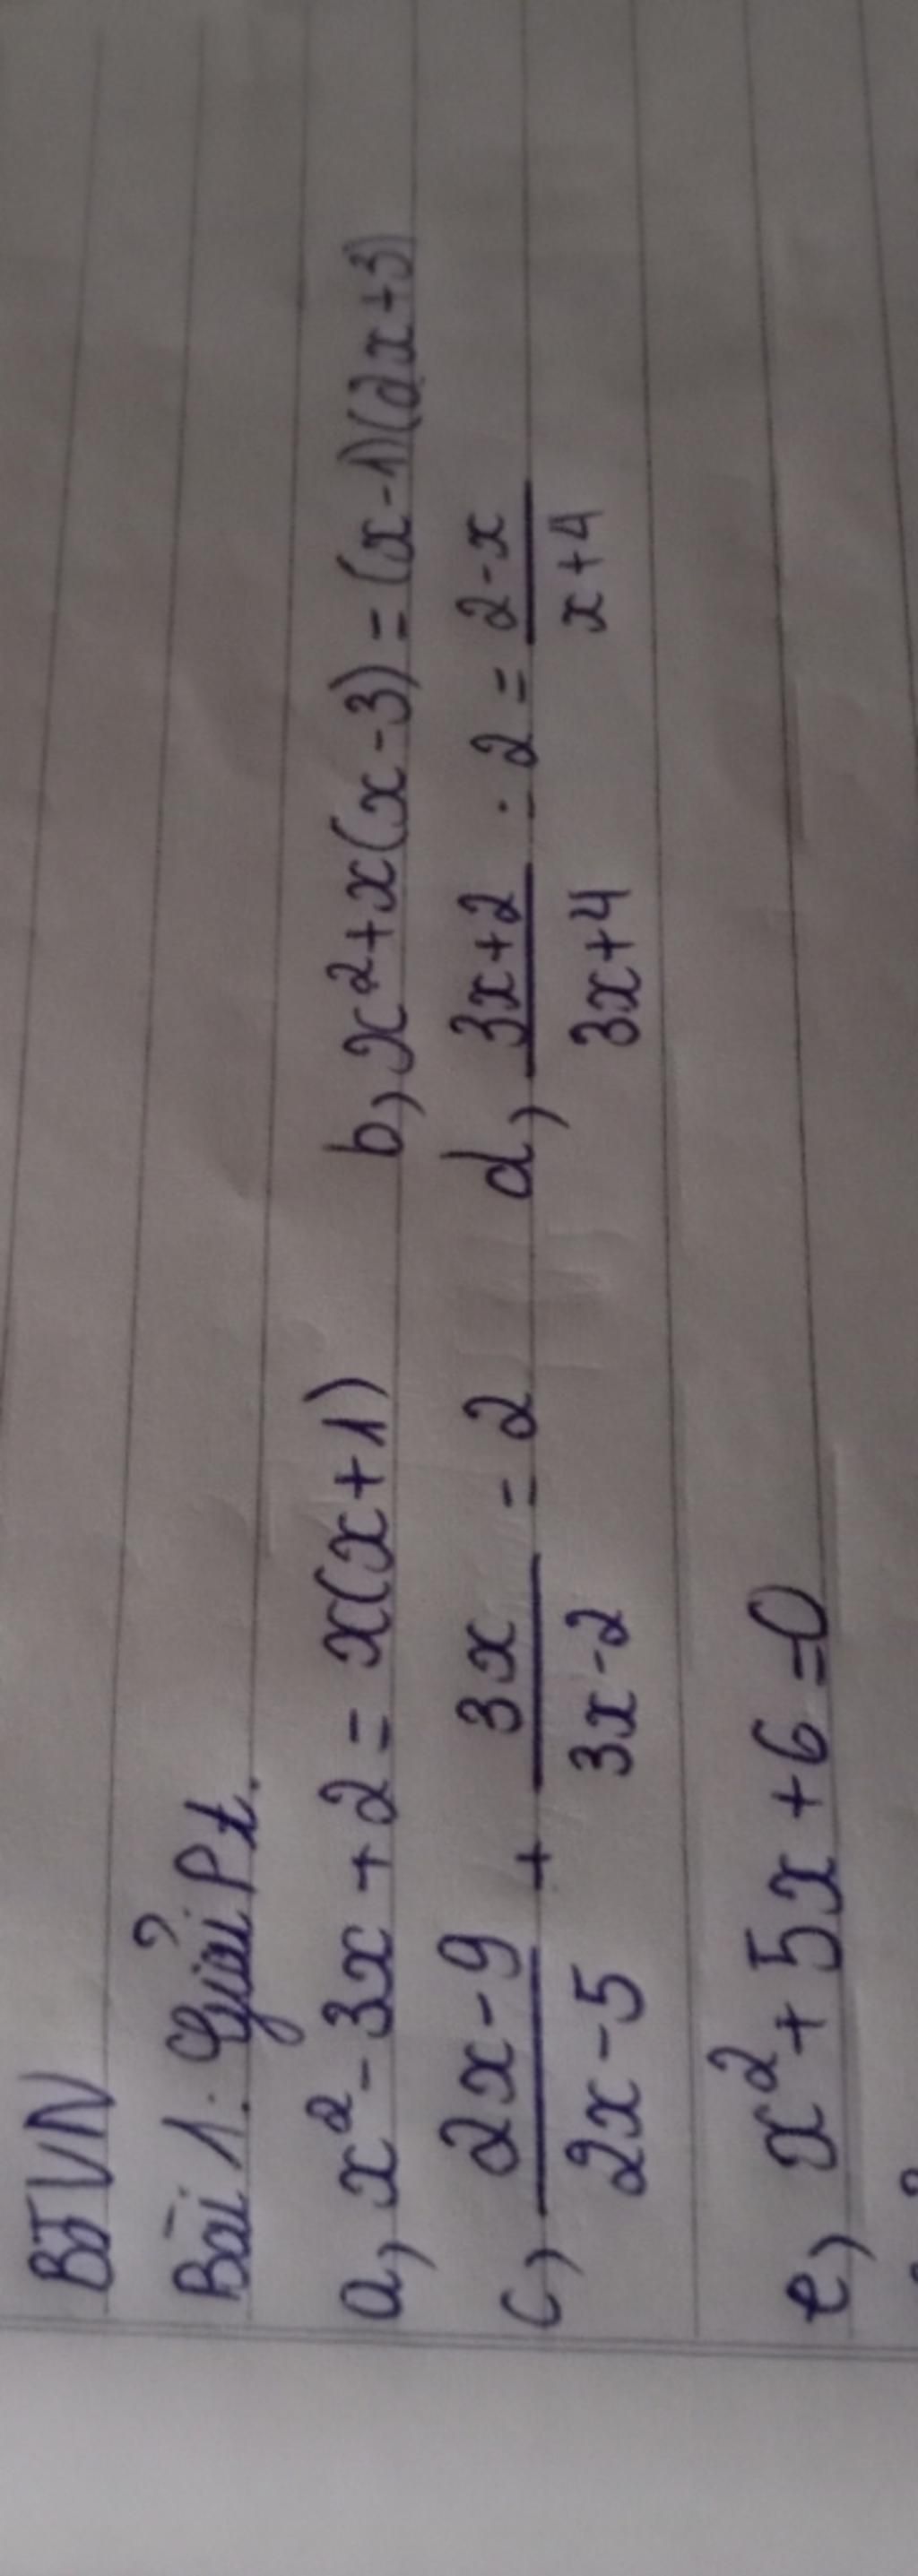 BTVN
Bài 1: Giải Pt.
a, x² - 3x + 2 = x(x+1)  b, x² + x(x-3) = (x-1)(2x+3)
c, (2x-9)/(2x-5) + 3x/(3x-2) = 2  d, (3x+2)/(3x+4) - 2 = (2-x)/(x+4)
e, x² + 5x + 6 = 0